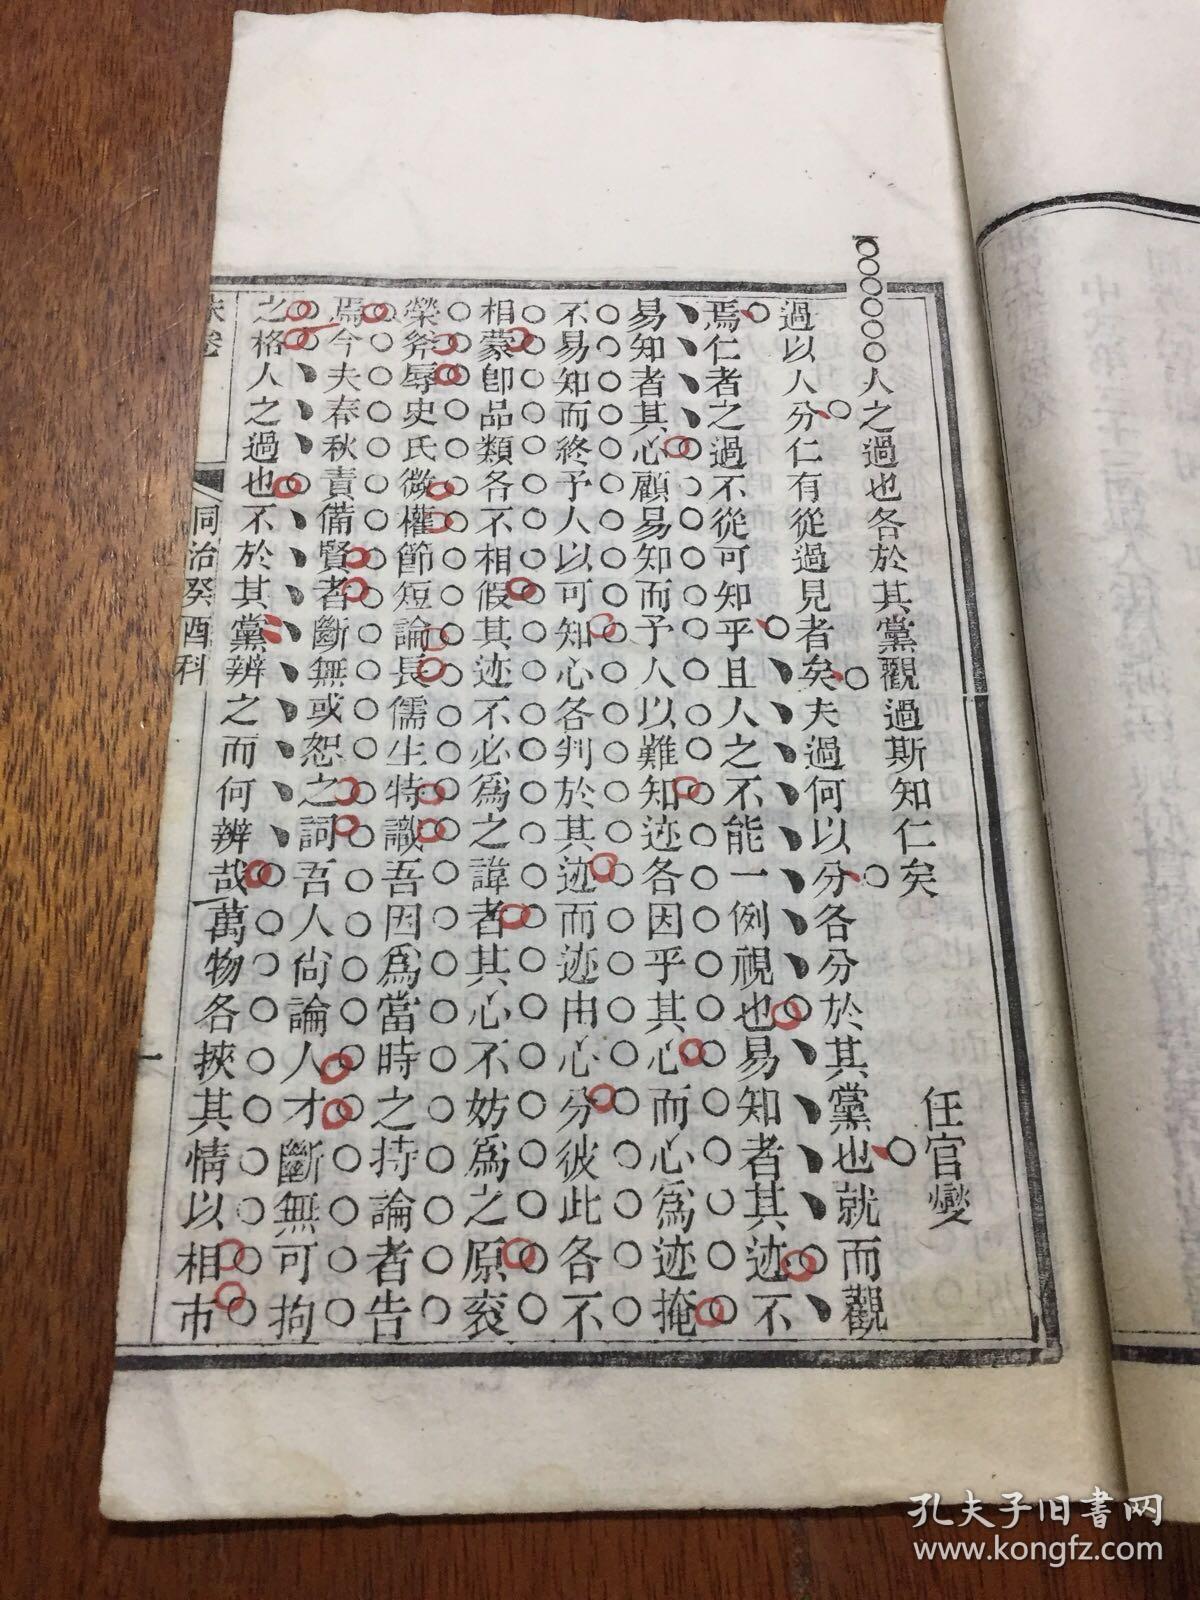 人之過也各於其黨觀過斯知仁矣
任官燮
過以人分仁有從過見者矣夫過何以分各分於其黨也就而觀
焉仁者之過不從可知乎且人之不能一例視也易知者其迹不
易知者其心顧易知而予人以難知迹各因乎其心而心爲迹掩
不易知而終予人以可知心各判於其迹而迹由心分彼此各不
相蒙卽品類各不相假其迹不必爲之諱者其心不妨爲之原袞
榮斧辱史氏微權節短論長儒生特識吾因爲當時之持論者告
焉今夫春秋責備賢者斷無或恕之詞吾人尙論人才斷無可拘
之格人之過也不於其黨辨之而何辨哉萬物各挾其情以相市
硃卷
同治癸酉科
一
孔夫子旧书网
www.kongfz.com